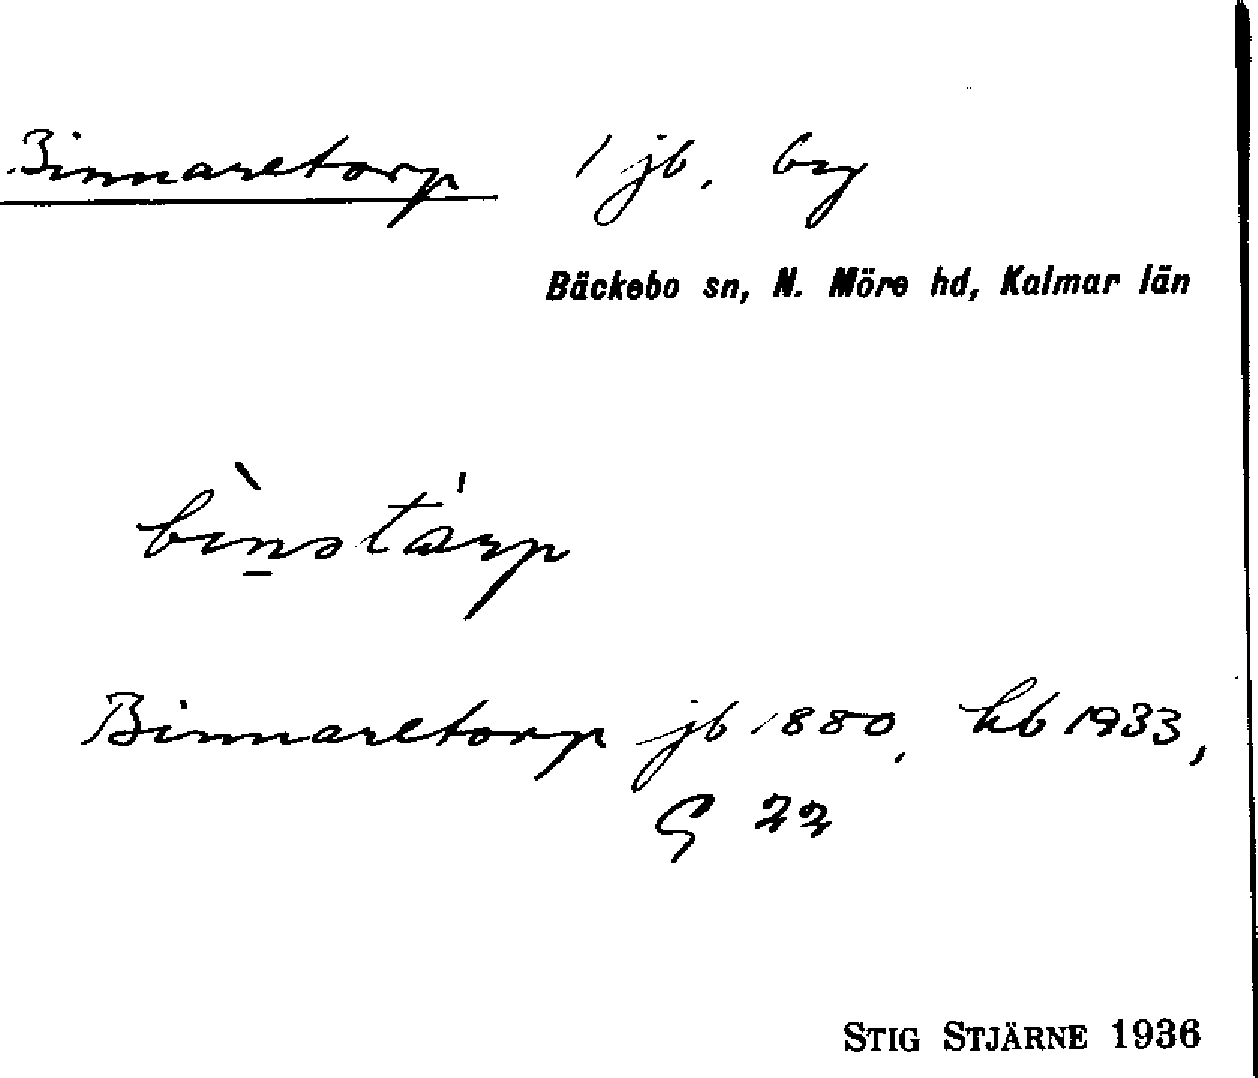 Binnaretorp 1 jb. by
Bäckebo sn, N. Möre hd, Kalmar län
Binnaretorp jb 1880, hb 1933,
G 22
STIG STJÄRNE 1936